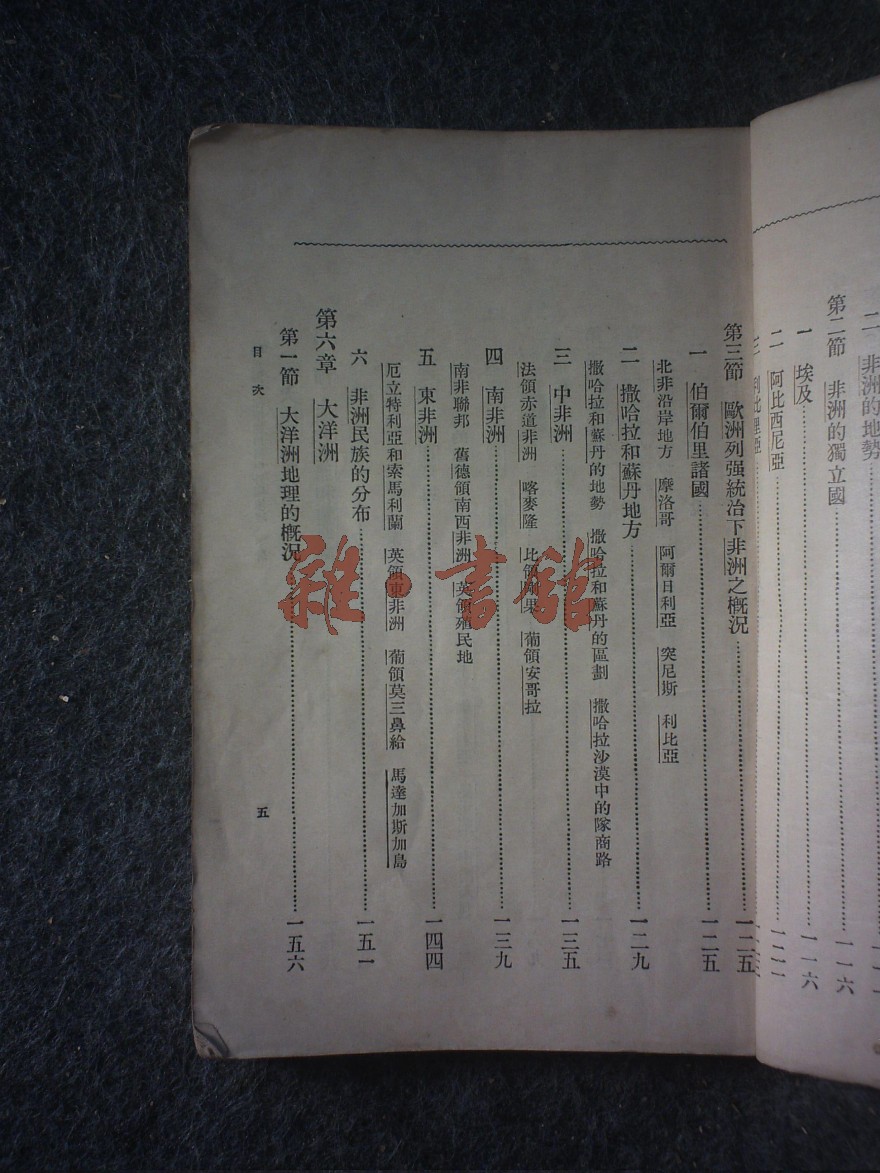 二 非洲的地勢
第二節 非洲的獨立國……一一六
一 埃及……一一六
二 阿比西尼亞……一二一
三 利比里亞
第三節 歐洲列强統治下非洲之概況……一二五
一 伯爾伯里諸國……一二五
北非沿岸地方 摩洛哥 阿爾日利亞 突尼斯 利比亞
二 撒哈拉和蘇丹地方……一二九
撒哈拉和蘇丹的地勢 撒哈拉和蘇丹的區劃 撒哈拉沙漠中的隊商路
三 中非洲……一三五
法領赤道非洲 喀麥隆 比領剛果 葡領安哥拉
四 南非洲……一三九
南非聯邦 舊德領南西非洲 英領殖民地
五 東非洲……一四四
厄立特利亞和索馬利蘭 英領東非洲 葡領莫三鼻給 馬達加斯加島
六 非洲民族的分布……一五一
第六章 大洋洲
第一節 大洋洲地理的概況……一五六
目次
五
雜·書館